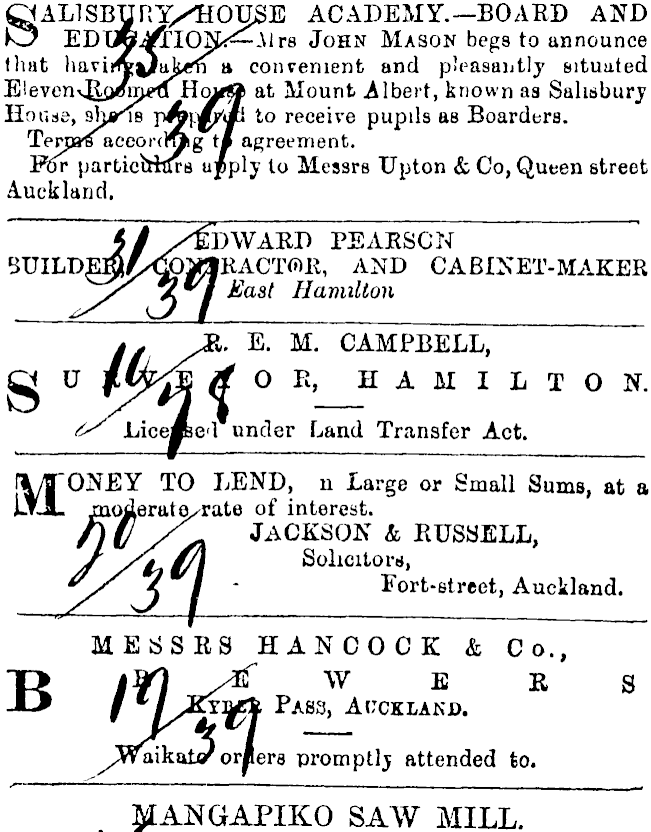 SALISBURY HOUSE ACADEMY.—BOARD AND
EDUCATION.—Mrs JOHN MASON begs to announce
that having taken a convenient and pleasantly situated
Eleven-Roomed House at Mount Albert, known as Salisbury
House, she is prepared to receive pupils as Boarders.
Terms according to agreement.
For particulars apply to Messrs Upton & Co, Queen street
Auckland.
35/39
EDWARD PEARSON
BUILDER, CONTRACTOR, AND CABINET-MAKER
East Hamilton
31/39
R. E. M. CAMPBELL,
SURVEYOR, HAMILTON.
Licensed under Land Transfer Act.
MONEY TO LEND, n Large or Small Sums, at a
moderate rate of interest.
JACKSON & RUSSELL,
Solicitors,
Fort-street, Auckland.
20/39
MESSRS HANCOCK & Co.,
BREWERS
KYBER PASS, AUCKLAND.
Waikato orders promptly attended to.
19/39
MANGAPIKO SAW MILL.